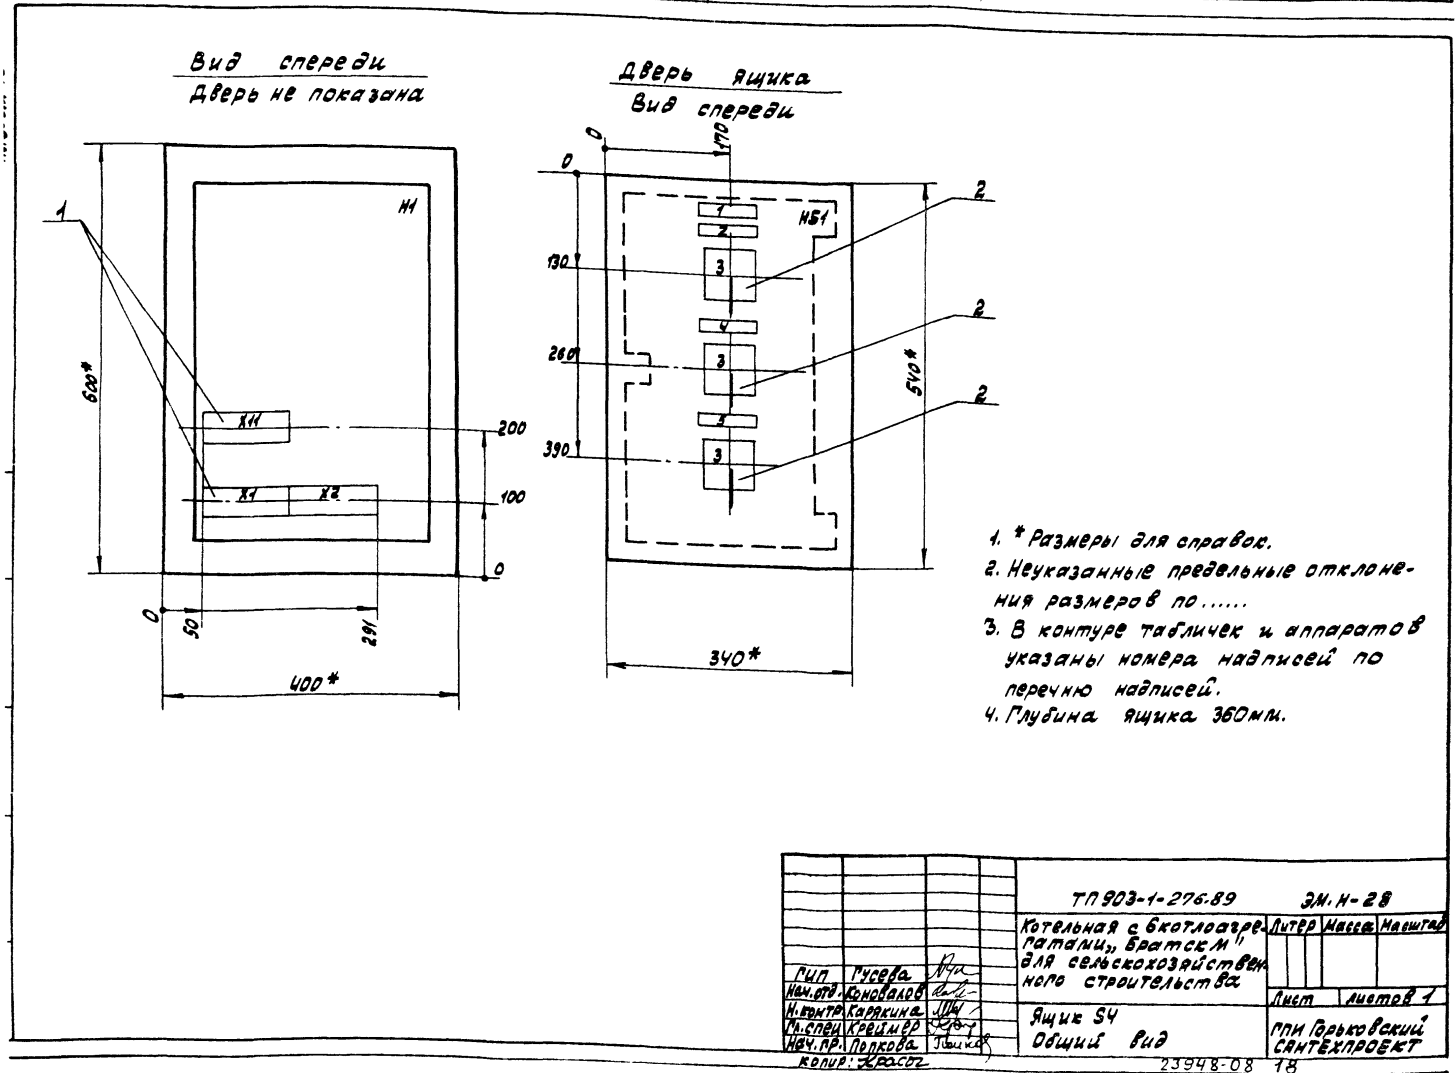 Вид спереди
Дверь не показана
Дверь ящика
Вид спереди
1
И1
Х11
Х1 Х2
600*
200
100
0
0
50
291
400*
0
170
0
130
260
390
1
2
3
4
3
5
3
НБ1
2
2
2
540*
340*
1. * Размеры для справок.
2. Неуказанные предельные отклоне-
ния размеров по ......
3. В контуре табличек и аппаратов
указаны номера надписей по
перечню надписей.
4. Глубина ящика 360мм.
ТП 903-1-276.89 ЭМ.И-28
Котельная с 6котлоагре-
гатами „Братск М"
для сельскохозяйствен-
ного строительства
Литер Масса Масштаб
Лист Листов 1
Ящик S4
Общий вид
ГПИ Горьковский
САНТЕХПРОЕКТ
ГИП Гусева
Нач.отд. Коновалов
Н.контр Карякина
Гл.спец Креймер
Нач.гр. Попкова
Копир:
23948-08 18